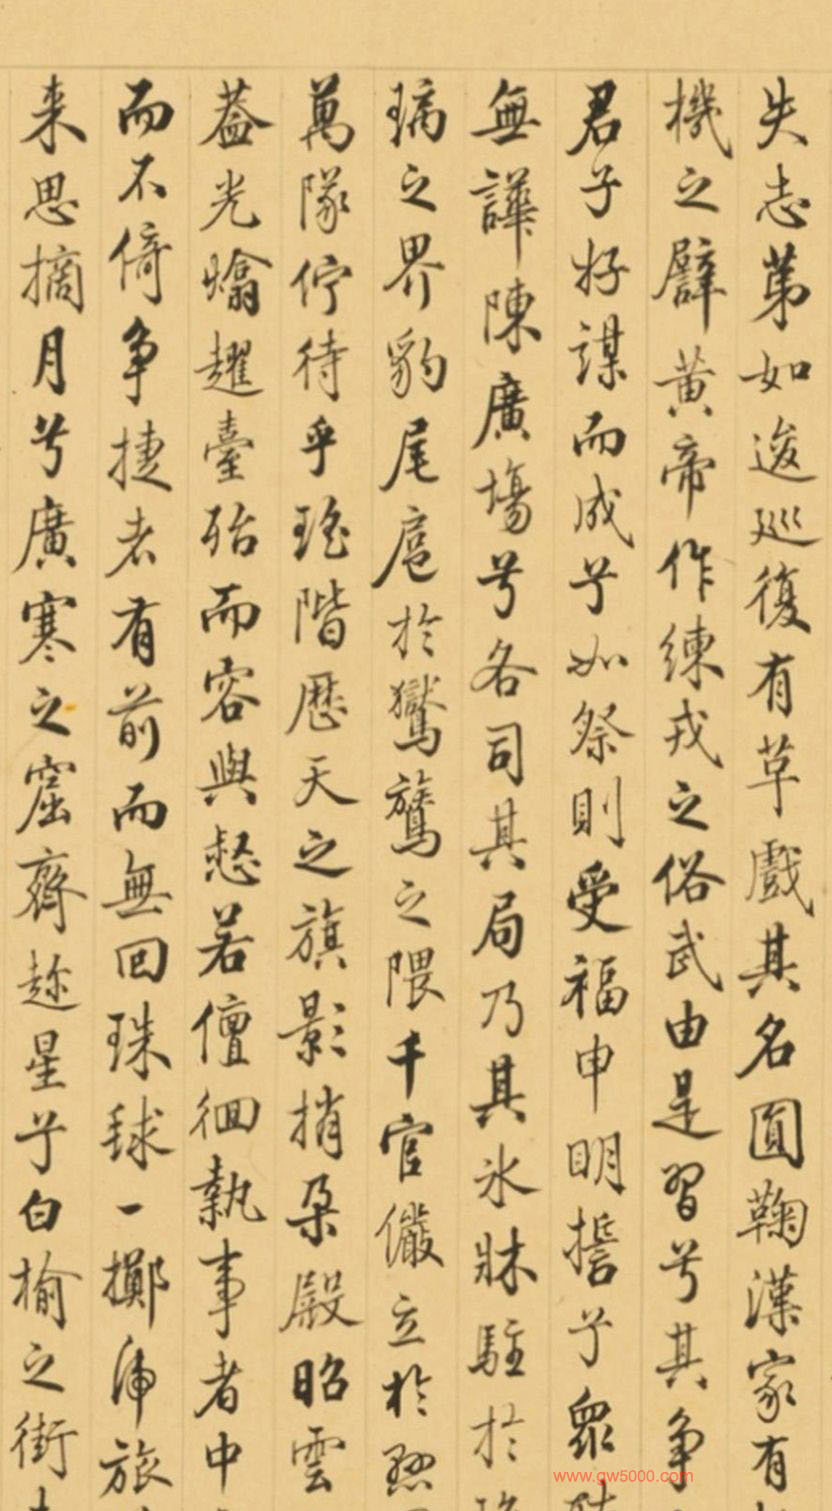 失志苐如逡巡復有革戲其名圓鞠漢家有
機之譬黄帝作練戎之俗武由是習兮其争
君子好謀而成于如祭則受福申明誓于衆
無譁陳廣場兮各司其局乃其氷牀駐於
璃之界豹尾扈於鸑鷟之隈千官儼立於
萬隊佇待乎瑤階歴天之旗影捎朶殿昭雲
葢光爚趯臺殆而容與若儃徊執事者中
而不倚争捷者有前而無回珠毬一擲虎旅
来思摘月兮廣寒之窟齊趂星于白榆之街
www.gw5000.com